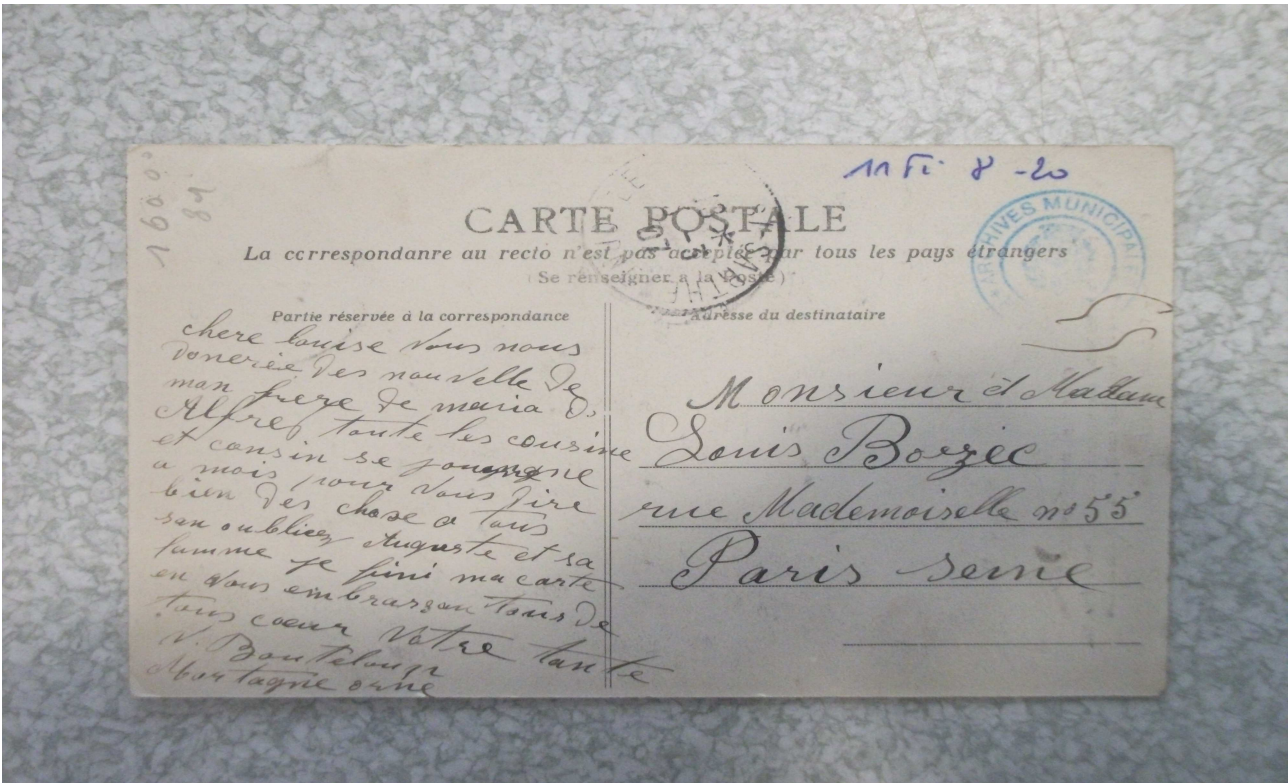 11 Fi 8 - 20
16000
81
CARTE POSTALE
La ccrrespondanre au recto n'est pas acceptée par tous les pays étrangers
(Se renseigner a la Poste)
ARCHIVES MUNICIPALE
SARTHE
Partie réservée à la correspondance
chere louise vous nous
donerée des nouvelle de
mon frere de maria d
Alfref toute les cousine
et cousin se
a mois pour vous dire
bien des chose a tous
san oubliez Auguste et sa
famme je fini ma carte
en vous embrassan tous de
tous coeur votre tante
V. Bouteloup
Mortagne orne
Adresse du destinataire
Monsieur et Madam
Louis Boezéc
rue Mademoiselle no 55
Paris seine